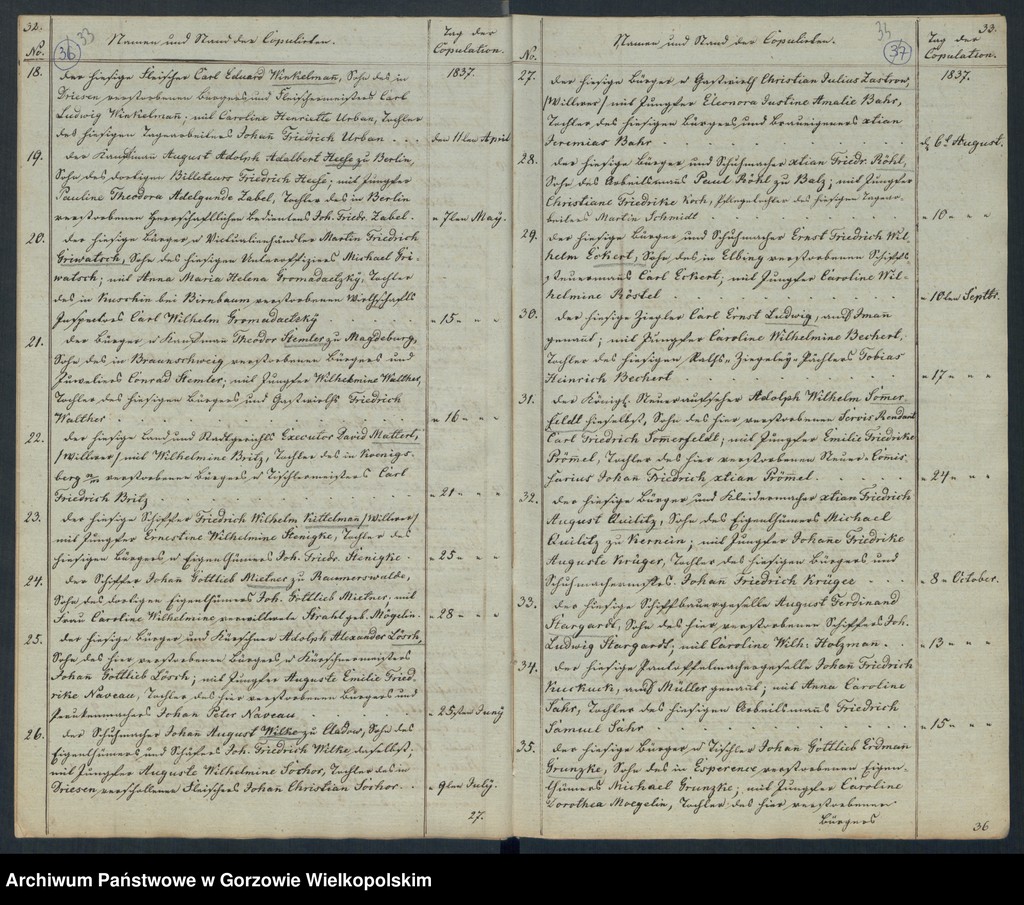 32.
33
36
No.
Namen und Stand der Copulirten.
Tag der
Copulation.
1837.
18. der hiesige Fleischer Carl Eduard Winkelmañ, Sohn des in
Driesen verstorbenen Bürgers und Fleischermeisters Carl
Ludwig Winkelmañ; mit Caroline Henriette Urban, Tochter
des hiesigen Tagearbeiters Johañ Friedrich Urban . . . den 11ten April
19. der Kaufmañ August Adolph Adalbert Hesse zu Berlin,
Sohn des dortigen Billeteurs Friedrich Hesse; mit Jungfer
Pauline Theodora Adelgunde Zabel, Tochter des in Berlin
verstorbenen herrschaftlichen Bedienten Joh. Friedr. Zabel. " 7ten May.
20. der hiesige Bürger u Victualienhändler Martin Friedrich
Griwatsch, Sohn des hiesigen Unterofficiers Michael Gri-
watsch; mit Anna Maria Helena Gromadaetzky, Tochter
des in Kuschin bei Birnbaum verstorbenen Wirthschafts
Inspectors Carl Wilhelm Gromadaetzky " 15 " "
21. der Bürger u Kaufmañ Theodor Hemler zu Magdeburg,
Sohn des in Braunschweig verstorbenen Bürgers und
Juveliers Conrad Hemler; mit Jungfer Wilhelmine Walther,
Tochter des hiesigen Bürgers und Gastwirths Friedrich
Walther " 16 " "
22. der hiesige Land und Stadtgerichts Executor David Mattert,
/Wittwer/ mit Wilhelmine Britz, Tochter des in Koenigs-
berg n/m verstorbenen Bürgers u Tischlermeisters Carl
Friedrich Britz " 21 " "
23. der hiesige Schiffer Friedrich Wilhelm Kittelmañ /Wittwer/
mit Jungfer Ernestine Wilhelmine Henigke, Tochter des
hiesigen Bürgers u Eigenthümers Joh. Friedr. Henigke. " 25 " "
24. der Schiffer Johañ Gottlieb Mietner zu Raumerswalde,
Sohn des dortigen Eigenthümers Joh. Gottlieb Mietner, mit
Frau Caroline Wilhelmine verwittwete Strahl geb. Mögelin. " 28 " "
25. der hiesige Bürger und Kürschner Adolph Alexander Lösch,
Sohn des hier verstorbenen Bürgers u Kürschnermeisters
Johañ Gottlieb Lösch; mit Jungfer Auguste Emilie Fried-
rike Naveau, Tochter des hier verstorbenen Bürgers und
Peruckenmachers Johañ Peter Naveau " 25sten Juny
26. der Schuhmacher Johañ August Wilke zu Cladow, Sohn des
Eigenthümers und Schäfers Joh. Friedrich Wilke daselbst;
mit Jungfer Auguste Wilhelmine Sörhor, Tochter des in
Driesen verschollenen Fleischers Johañ Christian Sörhor. " 9ten July.
27.
33.
33
37
No.
Namen und Stand der Copulirten.
Tag der
Copulation.
1837.
27. der hiesige Bürger u Gastwirth Christian Julius Zastrow,
/Wittwer/ mit Jungfer Eleonora Justine Amalie Bahr,
Tochter des hiesigen Bürgers und Braueigeners xtian
Jeremias Bahr d. 6t August.
28. der hiesige Bürger und Schuhmacher xtian Friedr. Röhl,
Sohn des Arbeitsmañs Paul Röhl zu Balz; mit Jungfer
Christiane Friedrike Koch, Pflegetochter des hiesigen Tagear-
beiters Martin Schmidt " 10 " "
29. der hiesige Bürger und Schuhmacher Ernst Friedrich Wil-
helm Eckert, Sohn des in Elbing verstorbenen Schiffs-
steuermañs Carl Eckert; mit Jungfer Caroline Wil-
helmine Röstel " 10ten Septbr.
30. der hiesige Ziegler Carl Ernst Ludwig, auch Iman
genañt; mit Jungfer Caroline Wilhelmine Bechert,
Tochter des hiesigen Raths-Ziegeley-Pächters Tobias
Heinrich Bechert " 17 " "
31. der Königl. Steueraufseher Adolph Wilhelm Som̃er-
feldt hieselbst, Sohn des hier verstorbenen Servis Rendant
Carl Friedrich Som̃erfeldt; mit Jungfer Emilie Friedrike
Pröm̃el, Tochter des hier verstorbenen Steuer-Com̃is-
sarius Johañ Friedrich xtian Pröm̃el. " 24 " "
32. der hiesige Bürger und Kleidermacher xtian Friedrich
August Quilitz, Sohn des Eigenthümers Michael
Quilitz zu Kernein; mit Jungfer Johañe Friedrike
Auguste Krüger, Tochter des hiesigen Bürgers und
Schuhmachermstrs. Johañ Friedrich Krüger " 8 " October.
33. der hiesige Schiffbauergeselle August Ferdinand
Stargardt, Sohn des hier verstorbenen Schiffers Joh.
Ludwig Stargardt; mit Caroline Wilh: Holzman. " 13 " "
34. der hiesige Pantoffelmachergeselle Johañ Friedrich
Kuckuck, auch Müller genañt; mit Anna Caroline
Sahr, Tochter des hiesigen Arbeitsmañs Friedrich
Samuel Sahr " 15 " "
35. der hiesige Bürger u Tischler Johañ Gottlieb Erdman
Grunzke, Sohn des in Esperence verstorbenen Eigen-
thümers Michael Grunzke; mit Jungfer Caroline
Dorothea Moegelin, Tochter des hier verstorbenen
Bürgers
36
Archiwum Państwowe w Gorzowie Wielkopolskim